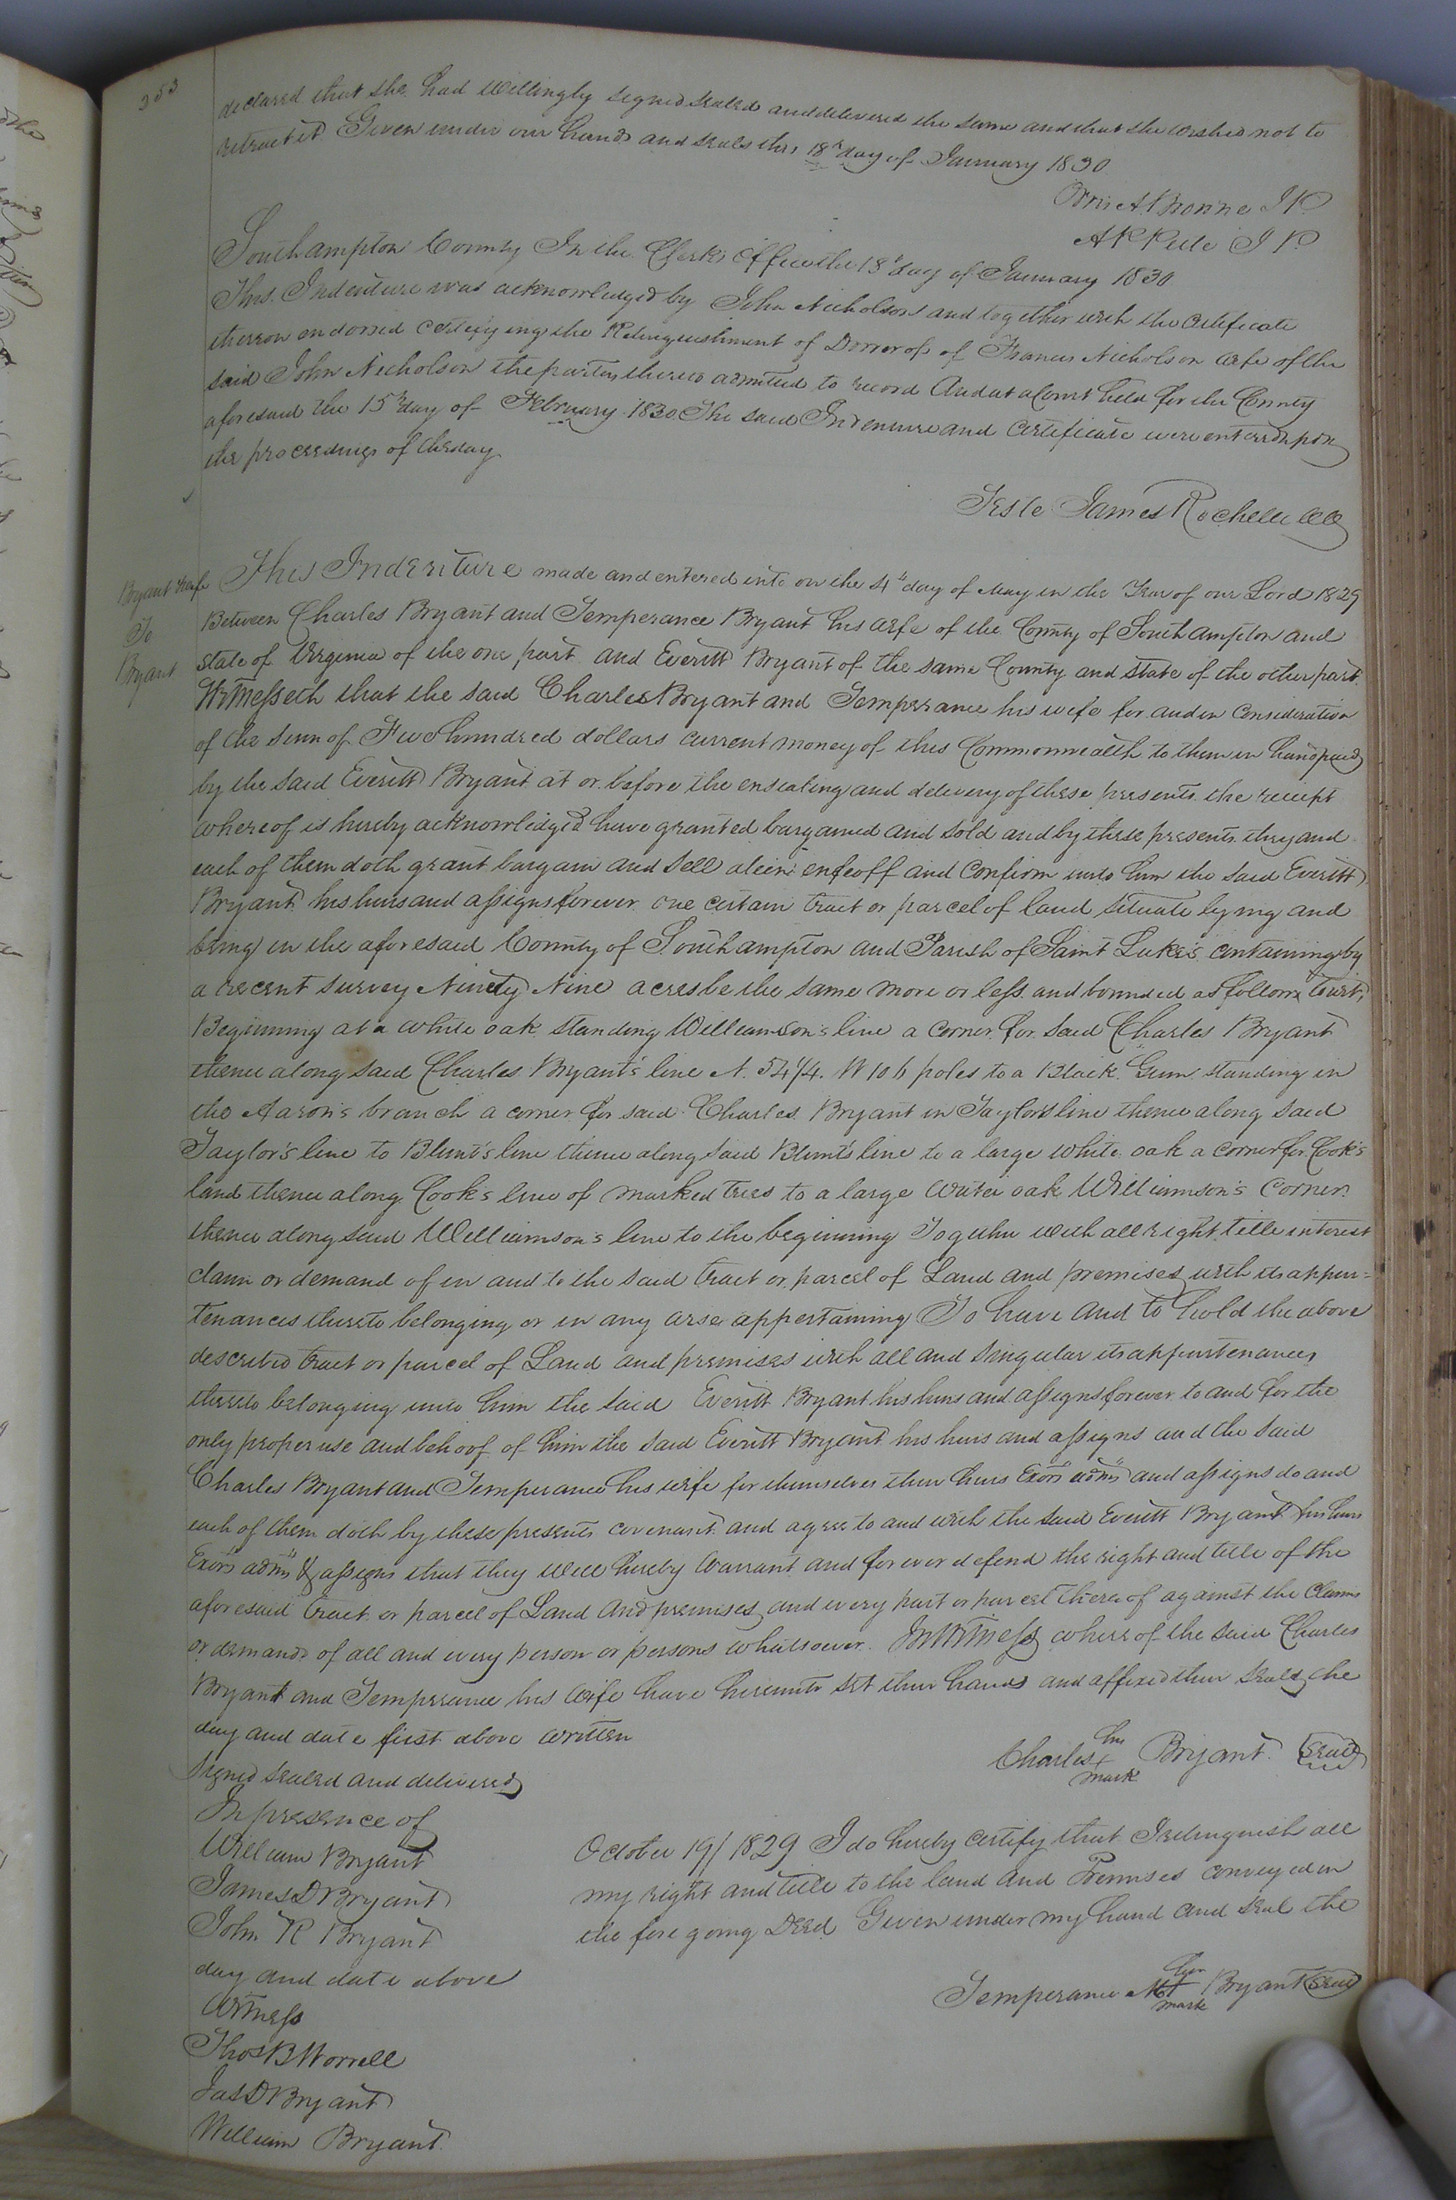 253
declared that she had willingly signed sealed and delivered the same and that she wished not to
retract it Given under our hands and seals this 18th day of January 1830
A Browne J P
J P
Southampton County In the Clerks Office the 18th day of January 1830
This Indenture was acknowledged by John Nicholson and together with the certificate
thereon endorsed certifying the Relinquishment of Dower of Frances Nicholson wife of the
said John Nicholson the party thereto admitted to record And at a Court held for the County
aforesaid the 15th day of February 1830 The said Indenture and certificate were entered upon
the proceedings of the day
Teste James Rochelle CC
Bryant & wife
To
Bryant
This Indenture made and entered into on the 4th day of May in the Year of our Lord 1829
Between Charles Bryant and Temperance Bryant his wife of the County of Southampton and
state of Virginia of the one part and Everitt Bryant of the same County and state of the other part
Witnesseth that the said Charles Bryant and Temperance his wife for and in consideration
of the sum of Two hundred dollars current money of this Commonwealth to them in hand paid
by the said Everitt Bryant at or before the ensealing and delivery of these presents the receipt
whereof is hereby acknowledged have granted bargained and sold and by these presents they and
each of them doth grant bargain and sell alien enfeoff and confirm unto him the said Everitt
Bryant his heirs and assigns forever one certain tract or parcel of land situate lying and
being in the aforesaid County of Southampton and Parish of Saint Luke's containing by
a recent survey Ninety Nine acres be the same more or less and bounded as follows towit,
Beginning at a white oak standing Williamson's line a corner for said Charles Bryant
thence along said Charles Bryant's line N. 54 1/4. W 106 poles to a Black Gum standing in
the Aaron's branch a corner for said Charles Bryant in Taylor's line thence along said
Taylor's line to Blunt's line thence along said Blunt's line to a large white oak a corner for Cook's
land thence along Cook's line of marked trees to a large water oak Williamson's Corner
thence along said Williamson's line to the beginning Together with all right title interest
claim or demand of in and to the said tract or parcel of Land and premises with its appur=
tenances thereto belonging or in any wise appertaining To have and to hold the above
described tract or parcel of Land and premises with all and singular its appurtenances
thereto belonging unto him the said Everitt Bryant his heirs and assigns forever to and for the
only proper use and behoof of him the said Everitt Bryant his heirs and assigns and the said
Charles Bryant and Temperance his wife for themselves their heirs Exors adms and assigns do and
each of them doth by these presents covenant and agree to and with the said Everitt Bryant his heirs
Exors adms & assigns that they will hereby warrant and forever defend the right and title of the
aforesaid tract or parcel of Land and premises and every part or parcel thereof against the claims
or demands of all and every person or persons whatsoever. In Witness whereof the said Charles
Bryant and Temperance his wife have hereunto set their hands and affixed their seals the
day and date first above written
Signed sealed and delivered
In presence of
William Bryant
James D Bryant
John R Bryant
his
Charles + Bryant Seal
mark
October 19/ 1829 I do hereby certify that I relinquish all
my right and title to the land and Premises conveyed in
the foregoing Deed Given under my hand and seal the
day and date above
Witness
Thos B Worrell
Jas D Bryant
William Bryant
her
Temperance M + Bryant Seal
mark